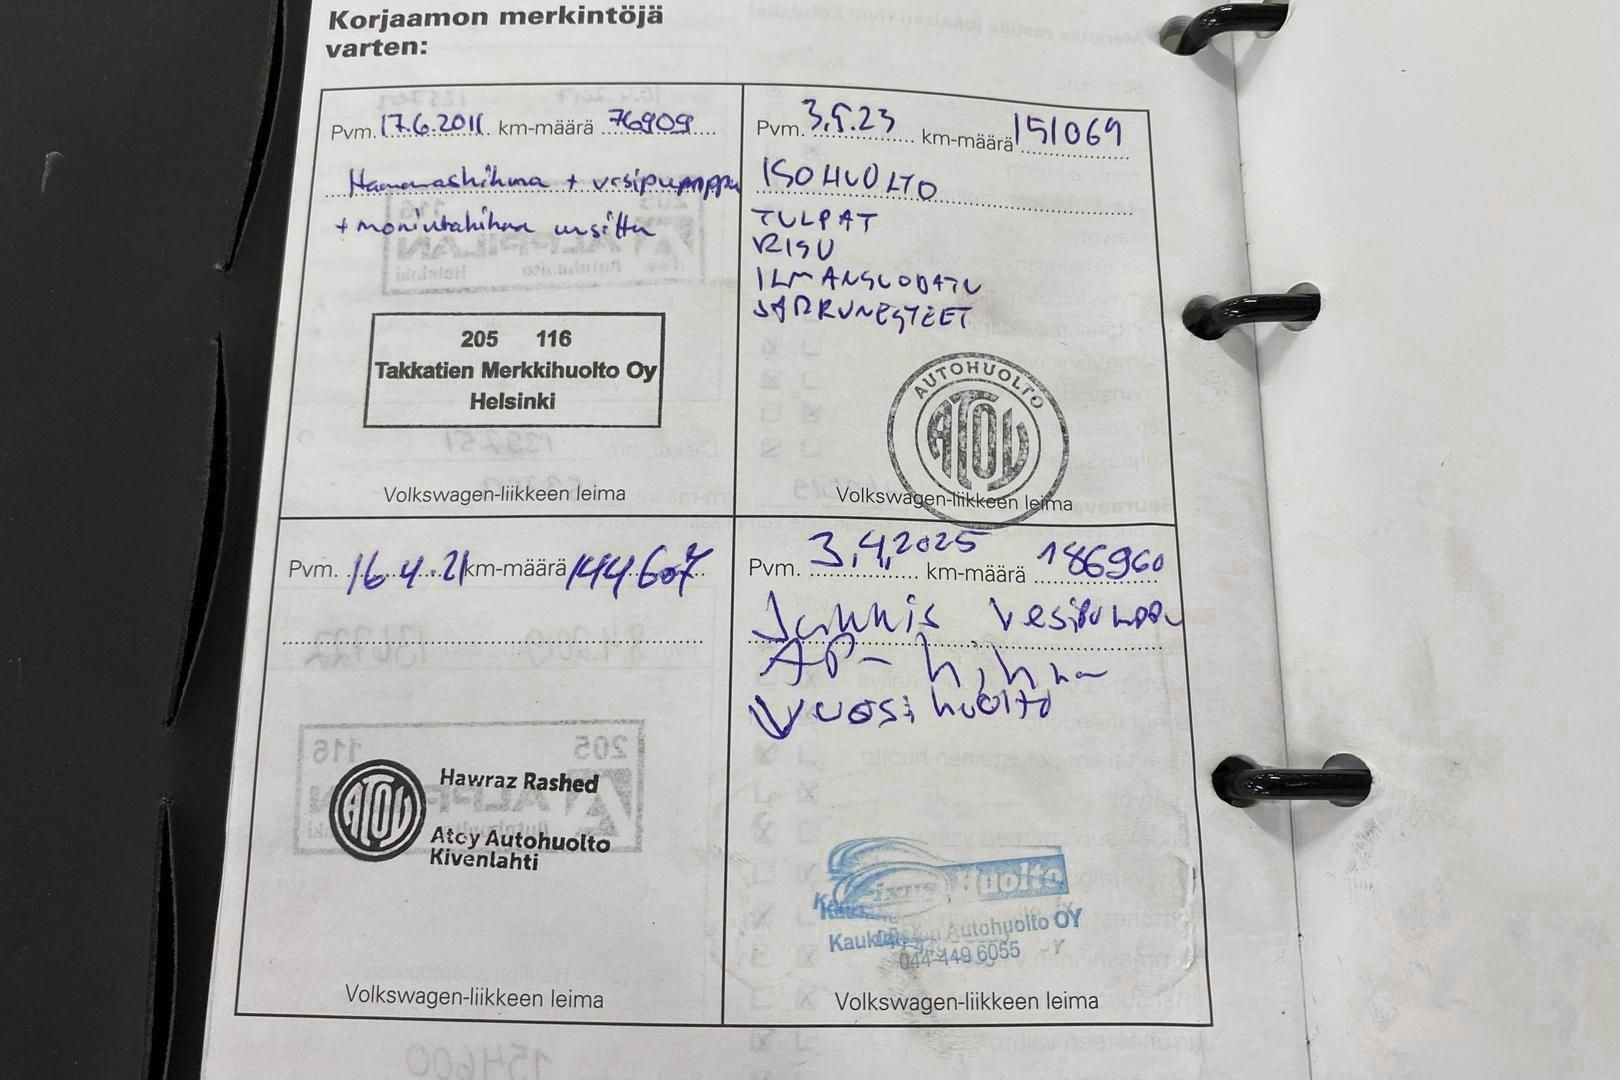 Korjaamon merkintöjä
varten:
Pvm. 17.6.2011 km-määrä 76909
Hammashihna + vesipumppu
+ moniurahihna uusittu
205 116
Takkatien Merkkihuolto Oy
Helsinki
Volkswagen-liikkeen leima
Pvm. 3.5.23 km-määrä 151069
ISO HUOLTO
TULPAT
RISU
ILMANSUODATU
JARRUNESTEET
AUTOHUOLTO
ATOY
Volkswagen-liikkeen leima
Pvm. 16.4.21 km-määrä 144607
ATOY
Hawraz Rashed
Atoy Autohuolto
Kivenlahti
Volkswagen-liikkeen leima
Pvm. 3.4.2025 km-määrä 186960
Jakkis Vesipumppu
AP-hihna
Vuosihuolto
Fixus Huolto
Autohuolto OY
044 449 6055
Volkswagen-liikkeen leima